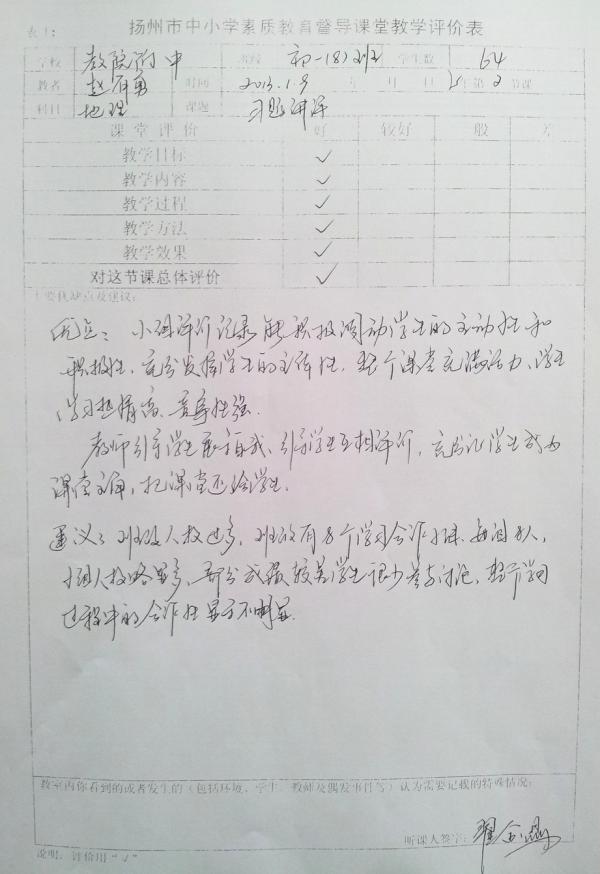 表1: 扬州市中小学素质教育督导课堂教学评价表
学校 教院附中 班级 初一(8)班 学生数 64
教者 时间 2013.1.9 年 月 日 午第2节课
科目 地理 课题 习题讲评
课堂评价 好 较好 一般 差
教学目标 ✓
教学内容 ✓
教学过程 ✓
教学方法 ✓
教学效果 ✓
对这节课总体评价 ✓
主要优缺点及建议:
优点: 小组评价记录能积极调动学生的主动性和
积极性, 充分发挥学生的主体性. 整个课堂充满活力, 学生
学习热情高、竞争性强.
教师引导学生展示自我、引导学生互相评价, 充分让学生成为
课堂主角, 把课堂还给学生.
建议: 班级人数过多, 班级有8个学习合作小组, 每组8人,
小组人数略显多, 部分成绩较差学生很少参与讨论, 整个学习
过程中的合作性显示不明显.
教室内你看到的或者发生的(包括环境、学生、教师及偶发事件等)认为需要记载的特殊情况:
听课人签字:
说明: 评价用"✓"